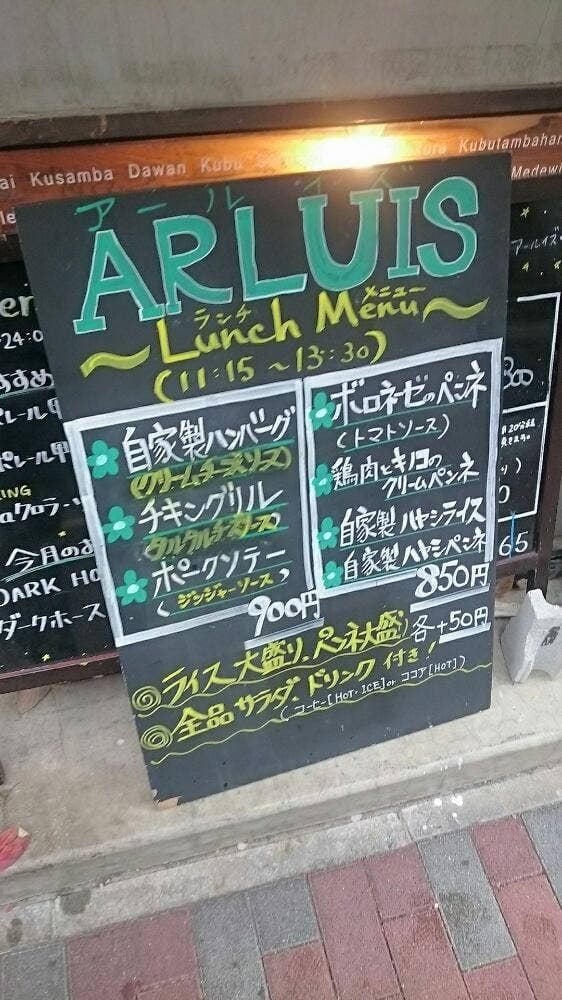 Kusamba Dawan Kubu
Kubutambahan
Medewi
アールイズ
ARLUIS
ランチ メニュー
~Lunch Menu~
(11:15~13:30)
自家製ハンバーグ
(クリームチーズソース)
チキングリル
タルタルチーズソース
ポークソテー
(ジンジャーソース)
900円
ボロネーゼのペンネ
(トマトソース)
鶏肉とキノコの
クリームペンネ
自家製ハヤシライス
自家製ハヤシペンネ
850円
ライス大盛り、ペンネ大盛 各+50円
全品サラダ、ドリンク付き!
(コーヒー[HOT・ICE]or ココア[HOT])
アールイズ
24:0
すすめ
ポレール
今月の
DARK HO
ダークホース
65